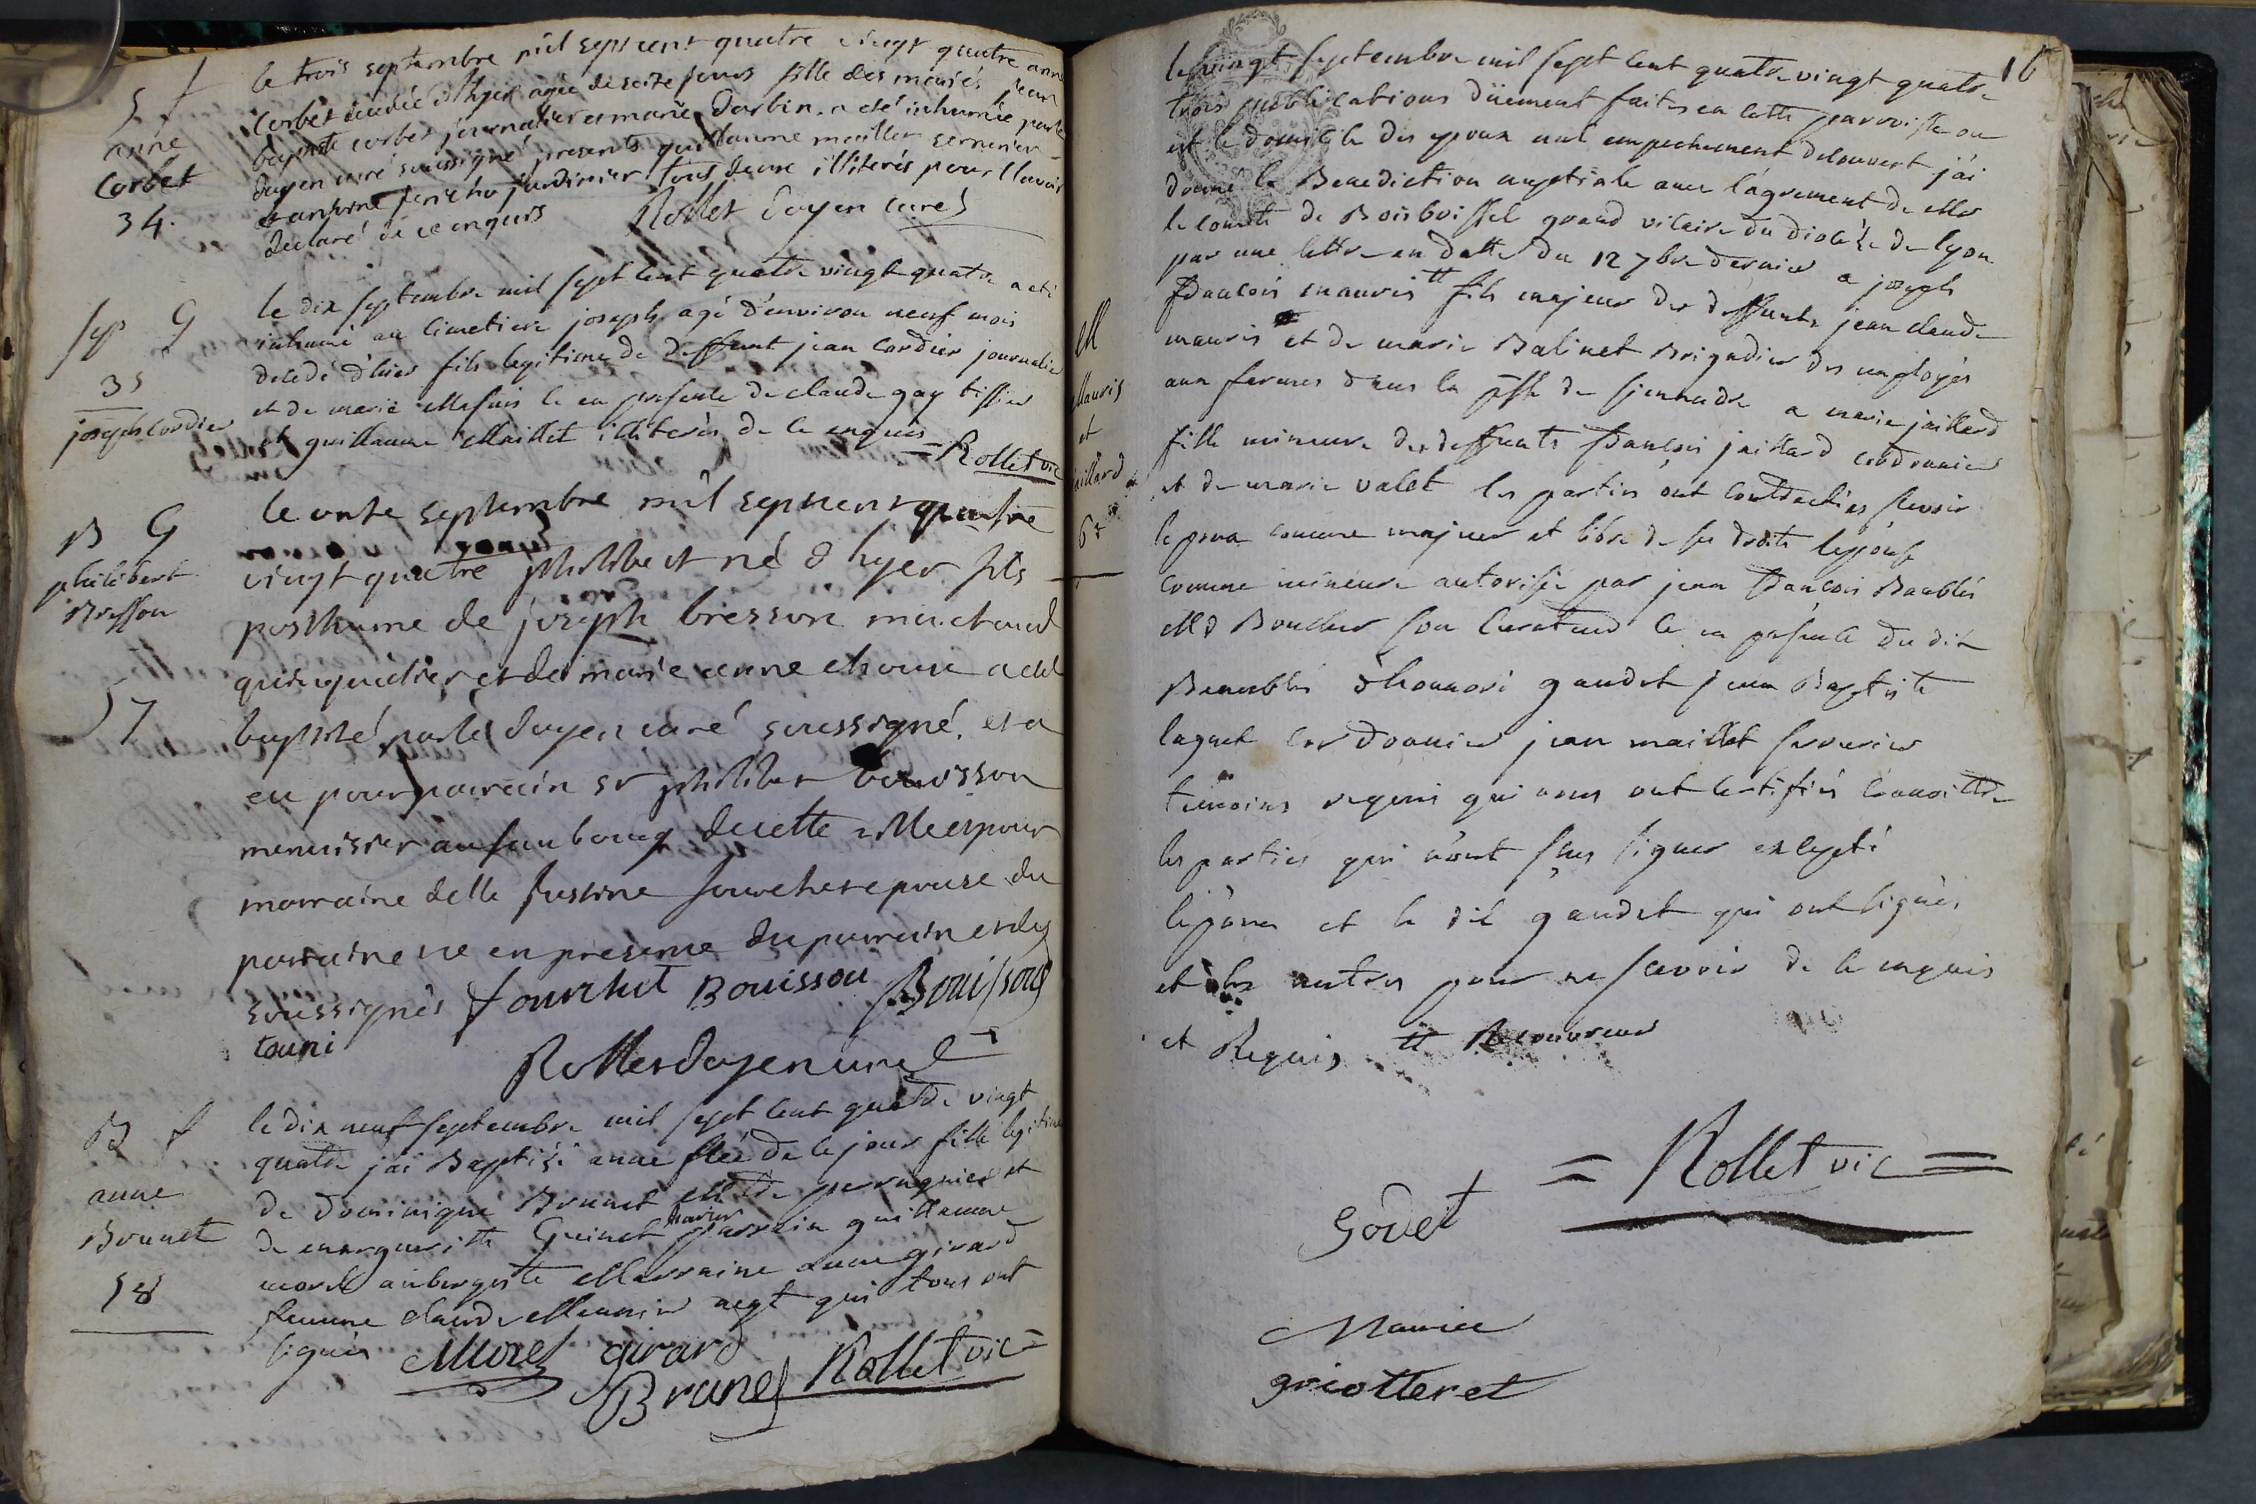 S f
anne
Corbet
34.
le trois septembre mil sept cent quatre vingt quatre anne
Corbet décédée d'hyer agée de seize jours fille des mariés jean
baptiste corbet journalier et marie Darbin. a eté inhumée par le
doyen curé soussigné presents guillaume maillet serrurier
et antoine jericho jardinier tous deux illiterés pour l'avoir
declaré de ce enquis Rollet doyen curé
Sep G
35
joseph Cordier
le dix septembre mil sept cent quatre vingt quatre a eté
inhumé au Cimetiere joseph agé d'environ neuf mois
decedé d'hier fils legitime de deffunt jean Cordier journalier
et de marie ce en presence de claude gay tissier
et guillaume Maillet illiterés de ce enquis = Rollet vic
B G
philibert
Bresson
57
le onze septembre mil sept cent quatre
vingt quatre philibert né d'hyer fils
posthume de joseph bresson marchand
quinquailier et de marie anne a eté
baptisé par le doyen curé soussigné. et a
eu pour parrain sr philiber bouisson
menuisier au faubourg de cette ville et pour
marraine delle justine fourchet epouse du
parrain ce en presence du parrain et des
soussignés fourchet Bouisson Bouisson
touni
Rollet doyen curé
B f
anne
Brunet
58
le dix neuf septembre mil sept cent quatre vingt
quatre j'ai Baptisé anne née de ce jour fille legitime
de dominique Brunet Md perruquier et
de marguerite Guinet parrain guillaume
morel aubergiste Marraine anne girard
femme claude Meunier negt qui tous ont
signés Morel girard
Brunet Rollet vic =
16
M
Mauris
et
jaillard
6e
le vingt septembre mil sept cent quatre vingt quatre
trois publications düement faites en cette parroisse ou
est le domicile des epoux nul empechement decouvert j'ai
donné la Benediction nuptiale avec l'agrement de Mr
le comte de Boisboissel grand vicaire du diocèse de lyon
par une lettre en datte du 12 7bre dernier a joseph
françois mauris tt fils majeur des deffunts jean claude
mauris et de marie Balinet Brigadier des employés
aux fermes dans la psse de a marie jaillard
fille mineure des deffunts françois jaillard cordonnier
et de marie valet les parties ont contractées scavoir
lepoux comme majeur et libre de ses droits lepouse
comme mineure autorisée par jean françois Baublés
Md Boucher son Curateur ce en presence du dit
Beaublés d'honnoré gaudet jean Baptiste
laguet Cordonnier jean maillet serrurier
temoins requis qui nous ont certifiés connoittre
les parties qui n'ont sçus signer excepté
lepoux et le dit gaudet qui ont signés
et les autres pour ne scavoir de ce enquis
et Requis tt Recouvreur
= Rollet vic =
Godet
Maurice
griotteret